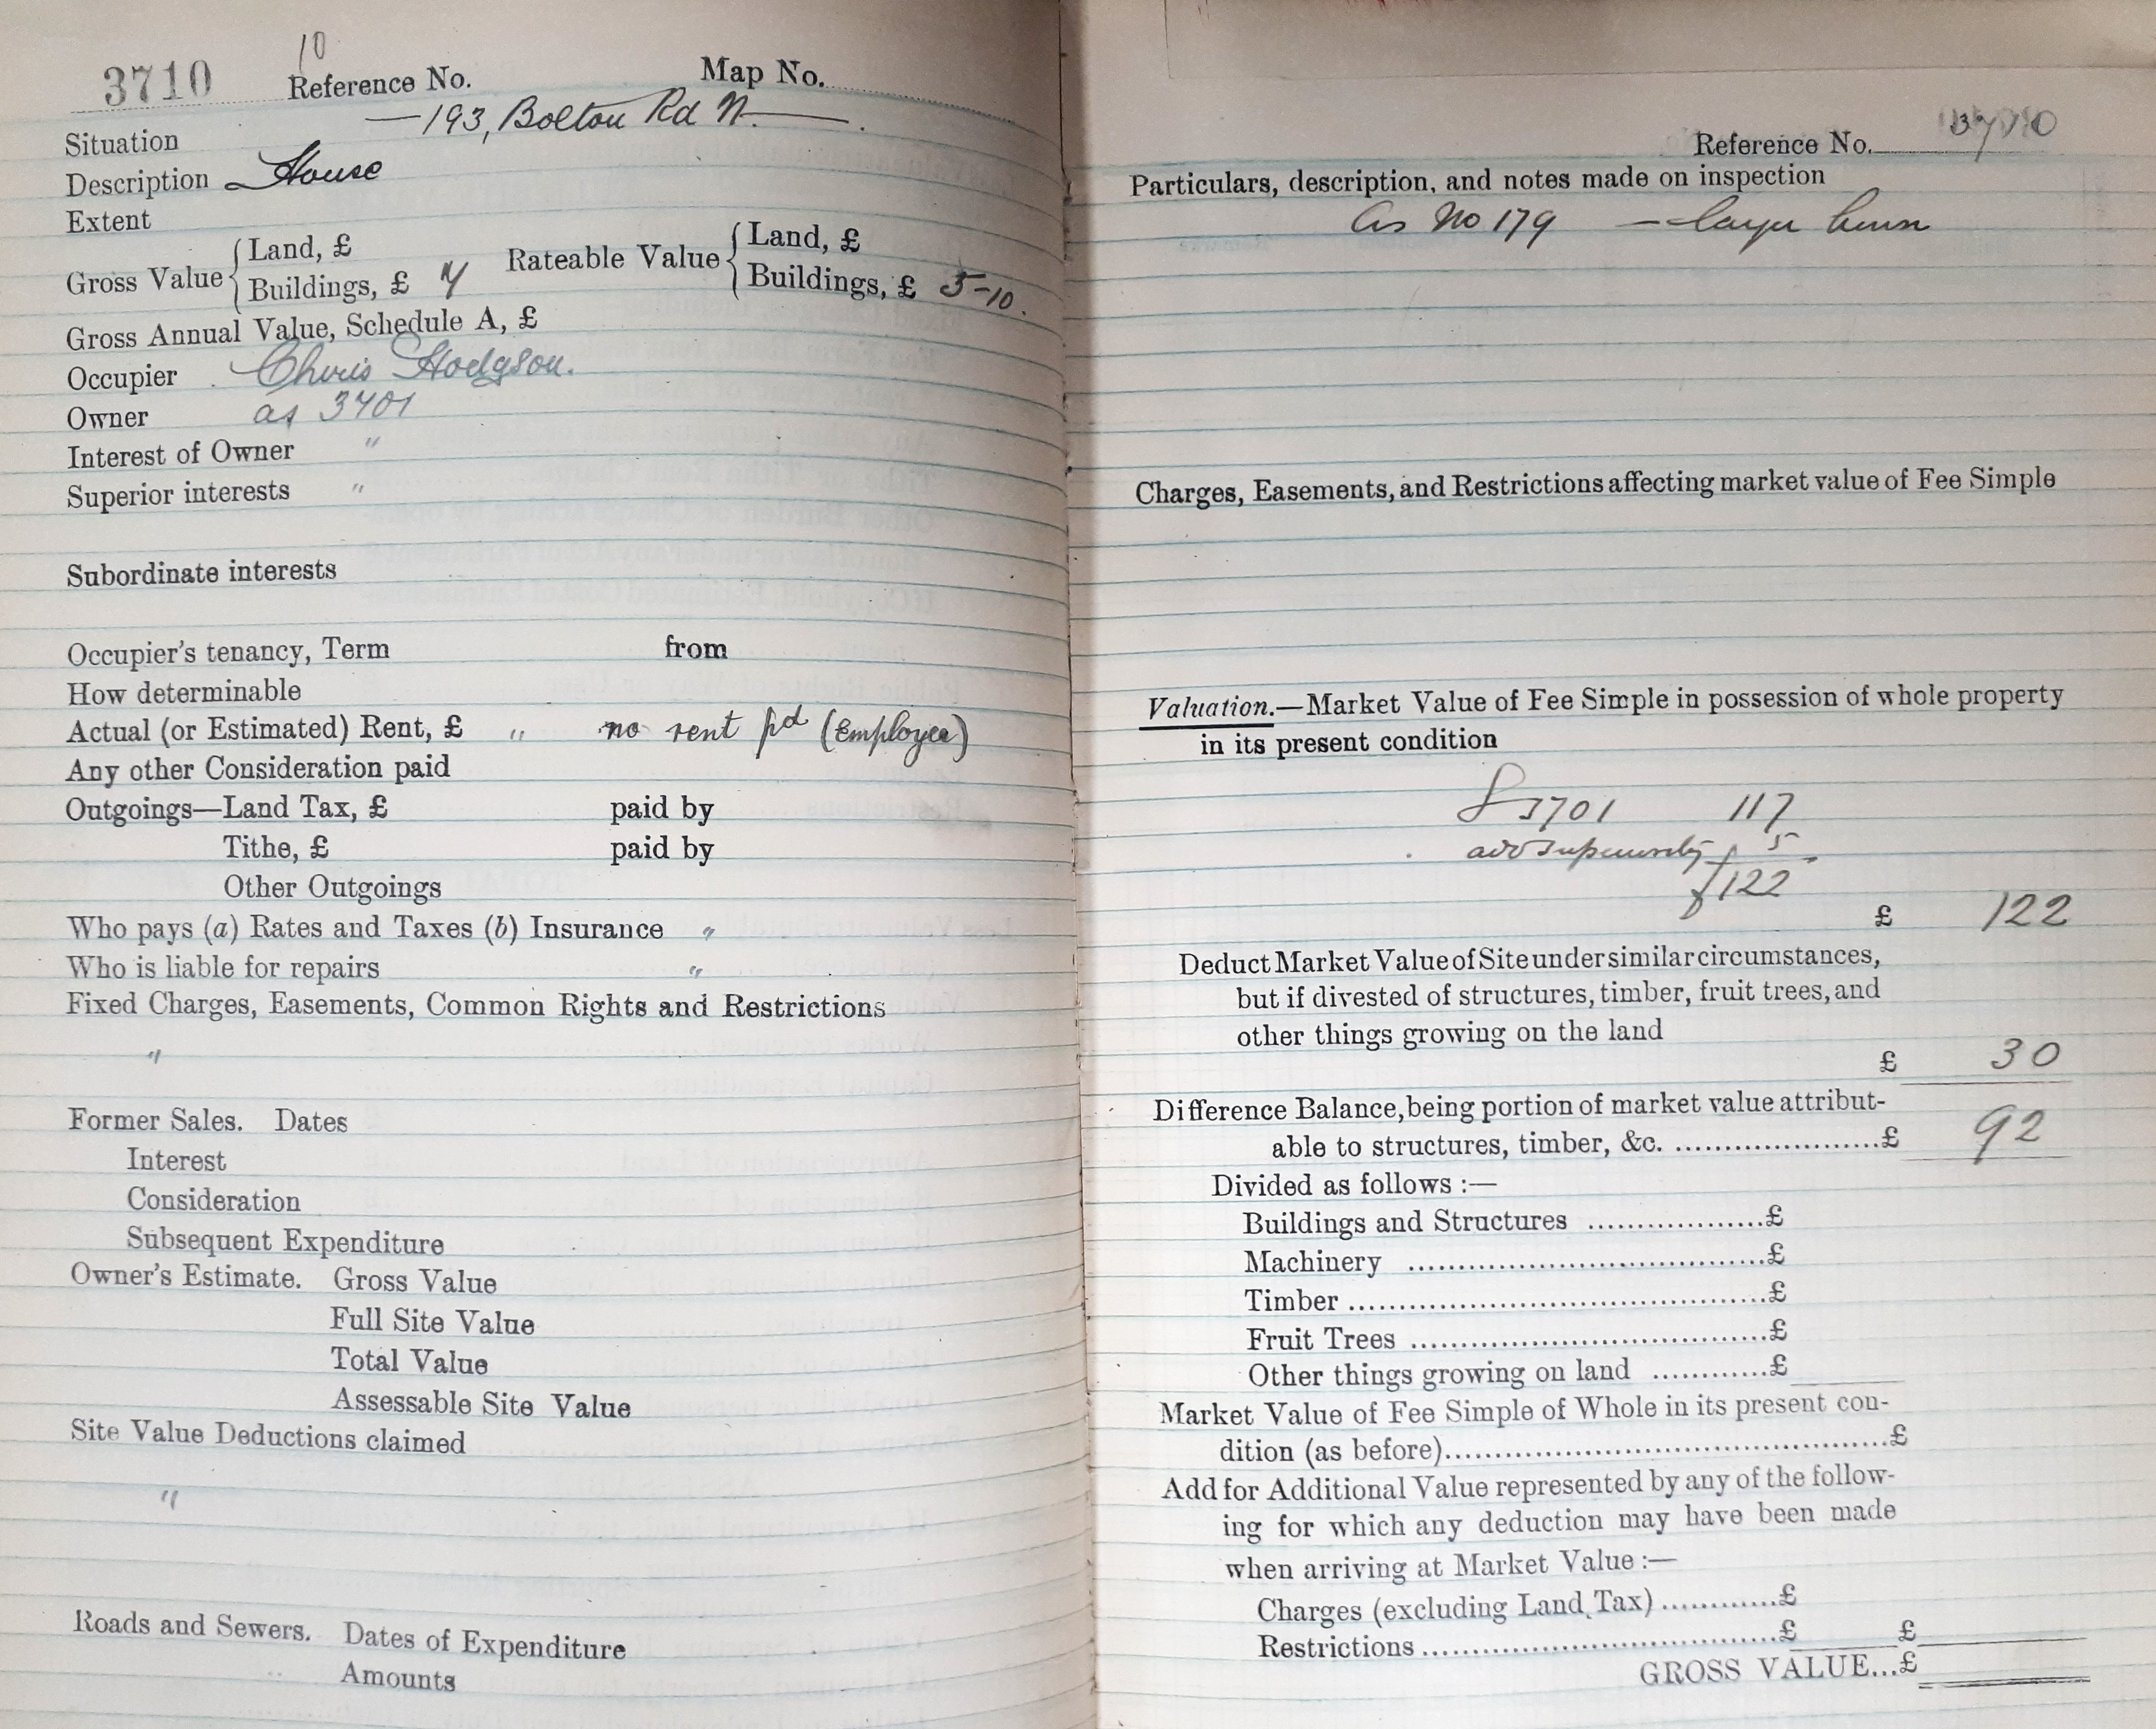 10
3710 Reference No. Map No.
Situation —193, Bolton Rd N.—.
Description House
Extent
Gross Value { Land, £ Rateable Value { Land, £
Buildings, £ 7 Buildings, £ 5-10.
Gross Annual Value, Schedule A, £
Occupier Chris Hodgson.
Owner as 3701
Interest of Owner "
Superior interests "
Subordinate interests
Occupier's tenancy, Term from
How determinable
Actual (or Estimated) Rent, £ " no rent pd (Employee)
Any other Consideration paid
Outgoings—Land Tax, £ paid by
Tithe, £ paid by
Other Outgoings
Who pays (a) Rates and Taxes (b) Insurance "
Who is liable for repairs "
Fixed Charges, Easements, Common Rights and Restrictions
"
Former Sales. Dates
Interest
Consideration
Subsequent Expenditure
Owner's Estimate. Gross Value
Full Site Value
Total Value
Assessable Site Value
Site Value Deductions claimed
"
Roads and Sewers. Dates of Expenditure
Amounts
Reference No. 3710
Particulars, description, and notes made on inspection
as No 179 — larger
Charges, Easements, and Restrictions affecting market value of Fee Simple
Valuation.—Market Value of Fee Simple in possession of whole property
in its present condition
3701 117
add superiority 5
£122
£ 122
Deduct Market Value of Site under similar circumstances,
but if divested of structures, timber, fruit trees, and
other things growing on the land
£ 30
Difference Balance, being portion of market value attribut-
able to structures, timber, &c. ...................£ 92
Divided as follows :—
Buildings and Structures ..................£
Machinery ....................................£
Timber ..........................................£
Fruit Trees ....................................£
Other things growing on land ............£
Market Value of Fee Simple of Whole in its present con-
dition (as before)............................................£
Add for Additional Value represented by any of the follow-
ing for which any deduction may have been made
when arriving at Market Value :—
Charges (excluding Land Tax) ............£
Restrictions ....................................£ £
GROSS VALUE...£